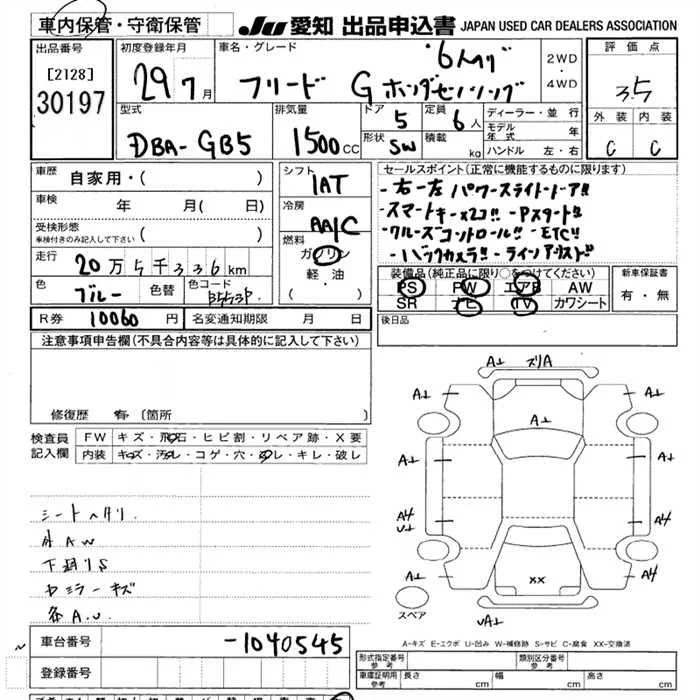 車内保管・守衛保管 JU 愛知 出品申込書 JAPAN USED CAR DEALERS ASSOCIATION
出品番号 初度登録年月 車名・グレード 2WD ・ 4WD 評価点
[2128] 30197 29 7月 フリード G ホンダセンシング 3.5
型式 排気量 ドア 定員 ディーラー・並行 外装 内装
DBA-GB5 1500CC 5 6人 モデル年式 年 C C
形状 SW 積載 kg ハンドル 左・右
車歴 自家用・( ) シフト 1AT セールスポイント(正常に機能するものに限ります)
車検 年 月( 日) 冷房 AA/C
-右-左パワースライドドア!!
-スマートキーx2コ!! -Pスタート!!
受検形態 車検付きのみ記入して下さい ( )
-クルーズコントロール!! -ETC!!
-バックカメラ!!
走行 20万5千336km 燃料 ガソリン 軽・油 ( )
装備品(純正品に限り○をつけてください) 新車保証書
色 ブルー 色替 色コード B553P
PS PW エアB AW 有・無
SR ナビ TV カワシート
R券 10060円 名変通知期限 月 日 後日品
注意事項申告欄(不具合内容等は具体的に記入して下さい)
修復歴 有 (箇所
検査員記入欄 FW キズ・飛石・ヒビ割・リペア跡・X要
内装 キズ・汚レ・コゲ・穴・スレ・キレ・破レ
シートヘタリ
外AW
下廻りS
ドミラーキズ
各A.U.
A⊥ ズリA
A⊥ A⊥ A⊥
A⊥ A⊥
A4 U⊥ A4
A⊥ XX A4
スペア UA⊥
A-キズ E-エクボ U-凹み W-補修跡 S-サビ C-腐食 XX-交換済
車台番号 -1040545
登録番号
形式指定番号 参考 類別区分番号 参考
車庫証明用 参考 長さ 幅 高さ cm cm cm